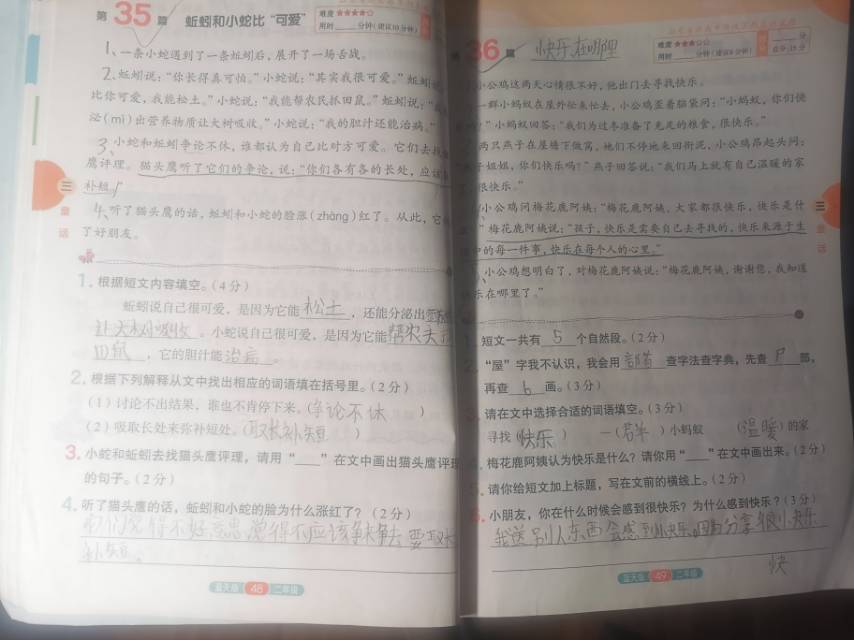 第35篇 蚯蚓和小蛇比“可爱”
难度★★★★☆
用时 分钟(建议10分钟)
1、一条小蛇遇到了一条蚯蚓后，展开了一场舌战。
2、蚯蚓说：“你长得真可怕。”小蛇说：“其实我很可爱。”蚯蚓
比你可爱，我能松土。”小蛇说：“我能帮农民抓田鼠。”蚯蚓说：“
泌(mì)出营养物质让大树吸收。”小蛇说：“我的胆汁还能治病。”
3、小蛇和蚯蚓争论不休，谁都认为自己比对方可爱。它们去找
鹰评理。猫头鹰听了它们的争论，说：“你们各有各的长处，应该
补短。”
4、听了猫头鹰的话，蚯蚓和小蛇的脸涨(zhàng)红了。从此，它
了好朋友。
三
童
话
1. 根据短文内容填空。(4分)
蚯蚓说自己很可爱，是因为它能松土，还能分泌出营养
让大树吸收。小蛇说自己很可爱，是因为它能帮农夫抓
田鼠，它的胆汁能治病。
2. 根据下列解释从文中找出相应的词语填在括号里。(2分)
(1)讨论不出结果，谁也不肯停下来。(争论不休)
(2)吸取长处来弥补短处。(取长补短)
3. 小蛇和蚯蚓去找猫头鹰评理，请用“____”在文中画出猫头鹰评理
的句子。(2分)
4. 听了猫头鹰的话，蚯蚓和小蛇的脸为什么涨红了？(2分)
他们觉得不好意思，觉得不应该争来争去，要取长
补短。
蓝天版 48 二年级
36篇 快乐在哪里
难度★★★☆☆
用时 分钟(建议8分钟)
小公鸡这两天心情很不好，他出门去寻找快乐。
一群小蚂蚁在屋外忙来忙去，小公鸡歪着脑袋问：“小蚂蚁，你们快
吗？”小蚂蚁回答：“我们为过冬准备了充足的粮食，很快乐。”
两只燕子在屋檐下做窝，她们不停地来回衔泥，小公鸡昂起头问：
子姐姐，你们快乐吗？”燕子回答说：“我们马上就有自己温暖的家
很快乐。”
小公鸡问梅花鹿阿姨：“梅花鹿阿姨，大家都很快乐，快乐是什
”梅花鹿阿姨说：“孩子，快乐是需要自己去寻找的，快乐来源于生
中的每一件事，快乐在每个人的心里。”
小公鸡想明白了，对梅花鹿阿姨说：“梅花鹿阿姨，谢谢您，我知道
乐在哪里了。”
三
童
话
短文一共有5个自然段。(2分)
“屋”字我不认识，我会用部首查字法查字典，先查尸部，
再查6画。(3分)
请在文中选择合适的词语填空。(3分)
寻找(快乐) 一(群)小蚂蚁 (温暖)的家
梅花鹿阿姨认为快乐是什么？请你用“____”在文中画出来。(2分)
请你给短文加上标题，写在文前的横线上。(2分)
小朋友，你在什么时候会感到很快乐？为什么感到快乐？(3分)
我送别人东西会感到快乐，因为分享很快乐
快
蓝天版 49 二年级